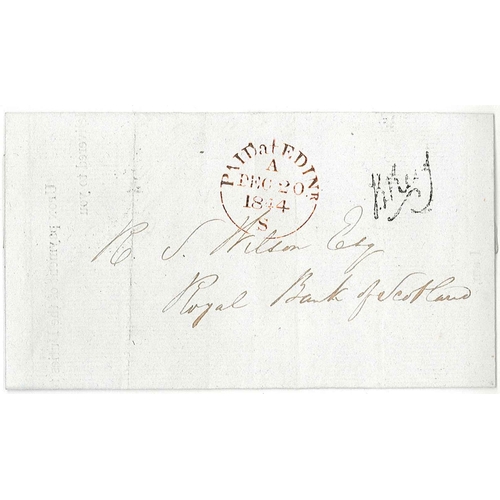 PAID at EDINR
A
DEC 20
1844
S
R. S. Wilson Esq
Royal Bank of Scotland